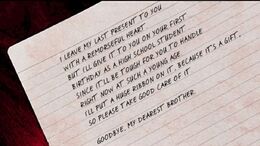 I LEAVE MY LAST PRESENT TO YOU
WITH A REMORSEFUL HEART.
BUT I'LL GIVE IT TO YOU ON YOUR FIRST
BIRTHDAY AS A HIGH SCHOOL STUDENT
SINCE IT'LL BE TOUGH FOR YOU TO HANDLE
RIGHT NOW AT SUCH A YOUNG AGE
I'LL PUT A HUGE RIBBON ON IT, BECAUSE IT'S A GIFT.
SO PLEASE TAKE GOOD CARE OF IT
GOODBYE, MY DEAREST BROTHER